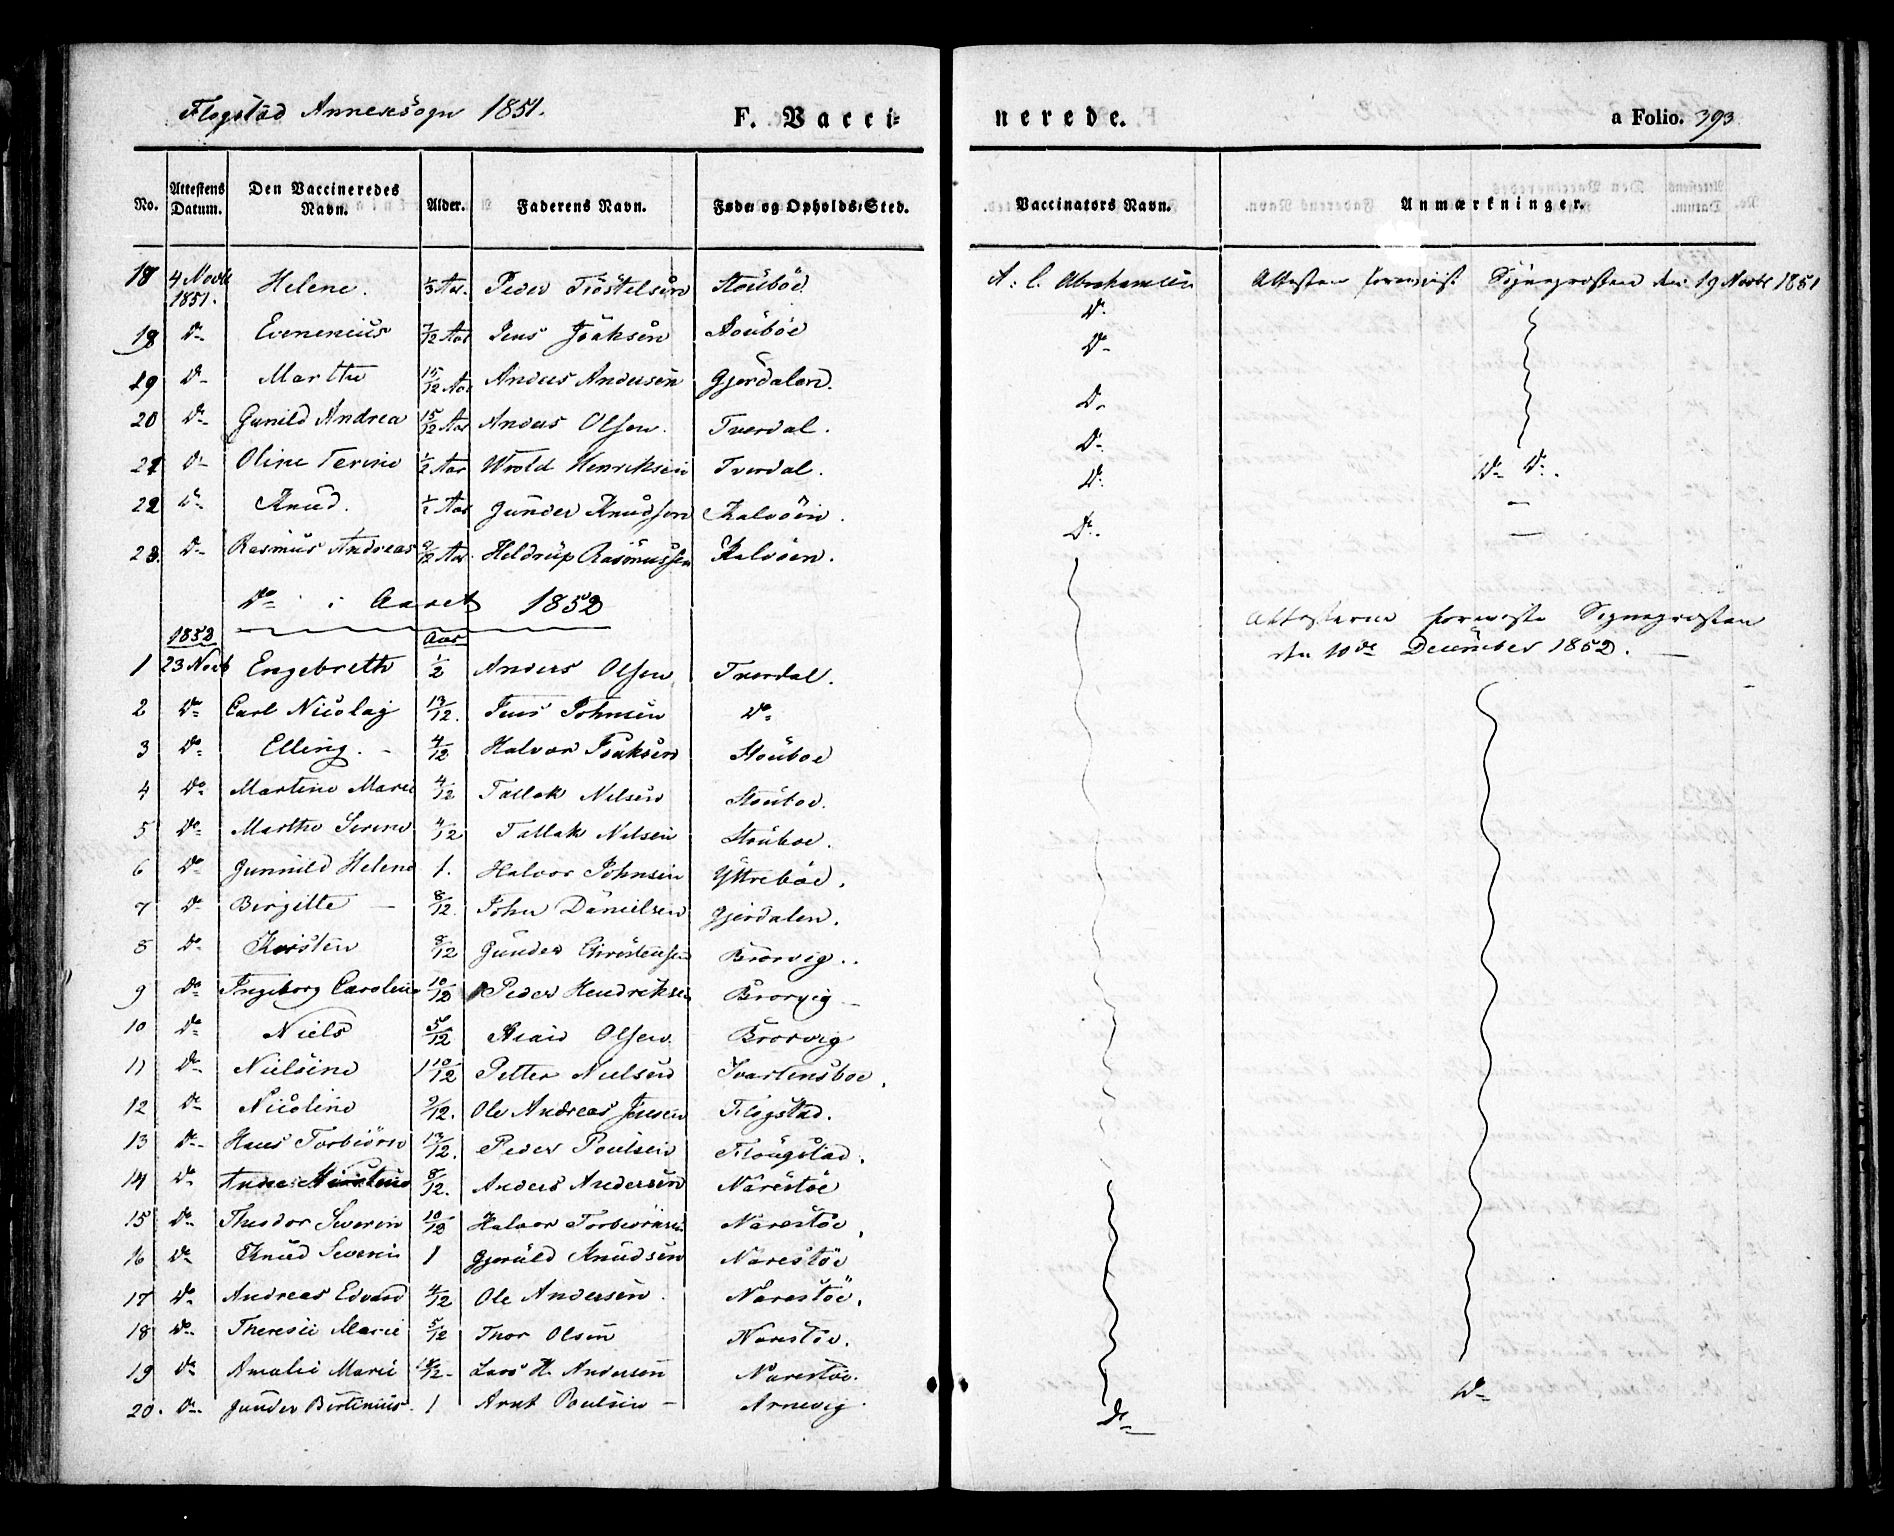 Flogstad Annexsogn 1851. F. Vacci= nerede. a Folio. 393
No. Attestens Datum. Den Vaccineredes Navn. Alder. Faderens Navn. Føde- og Opholds-Sted. Vaccinators Navn. Anmærkninger.
18 4 Novbr 1851. Helene. 1/3 Aar. Peder Stoubøe A: C. Abrahamsen Attesten forevist Sognepræsten den 19 Novbr 1851
18 Do Evenenius 7/12 Aar Jens Isaksen Stoubøe Do
19 Do Marthe 15/12 Aar Anders Andersen Gjerdalen. Do
20 Do Gunild Andrea 15/12 Aar Anders Olsen. Tverdal. Do
21 Do Oline Terine 1/2 Aar Wrold Henriksen Tverdal. Do Do Do
22 Do Knud. 1/2 Aar Gunder Knudsen Kalvøen. Do —
23. Do Rasmus Andreas 9/12 Aar. Heldrup Rasmussen Kalvøen. Do —
Do i Aaret 1852
1852 Aar Attesterne foreviste Sognepræsten
1 23 Novb Engebreth 1/2 Anders Olsen Tverdal. den 10de December 1852. —
2 Do Carl Nicolay 13/12. Jens Johnsen Do
3 Do Elling. 4/12 Halvor Isaksen Stouboe
4 Do Martine Marie 4/12 Tallak Nilsen Stouboe.
5 Do Marthe Serine 4/12 Tallak Nilsen Stouboe.
6 Do Gunnild Helene 1. Halvor Johnsen Yttrebøe.
7 Do Birgitte — 8/12. John Danielsen Gjerdalen.
8 Do Kirsten 8/12 Gunder Christensen Brorvig.
9 Do Ingeborg Caroline 10/12 Peder Hendriksen Brorvig —
10 Do Niels 5/12 Olsen Brorvig
11 Do Nielsine 1 10/12 Petter Nielsen Ivartensboe.
12 Do Nicoline 9/12. Ole Andreas Jensen Flogstad.
13 Do Hans Torbiørn 13/12. Peder Poulsen Flougstad.
14 Do Anne Kirstine 8/12. Anders Andersen Narestøe
15 Do Theodor Severin 10/12 Halvor Torbiørnsen Narestøe.
16 Do Knud Severin 1 Gjeruld Knudsen Narestøe
17 Do Andreas Edvard 4/12 Ole Andersen. Narestøe.
18 Do Theresie Marie 5/12 Thor Olsen Narestøe.
19 Do Amalie Marie Lars H. Andersen Narestøe.
20. Do Gunder Bertinius. 1 Arnt Poulsen — Arnevig. Do Do